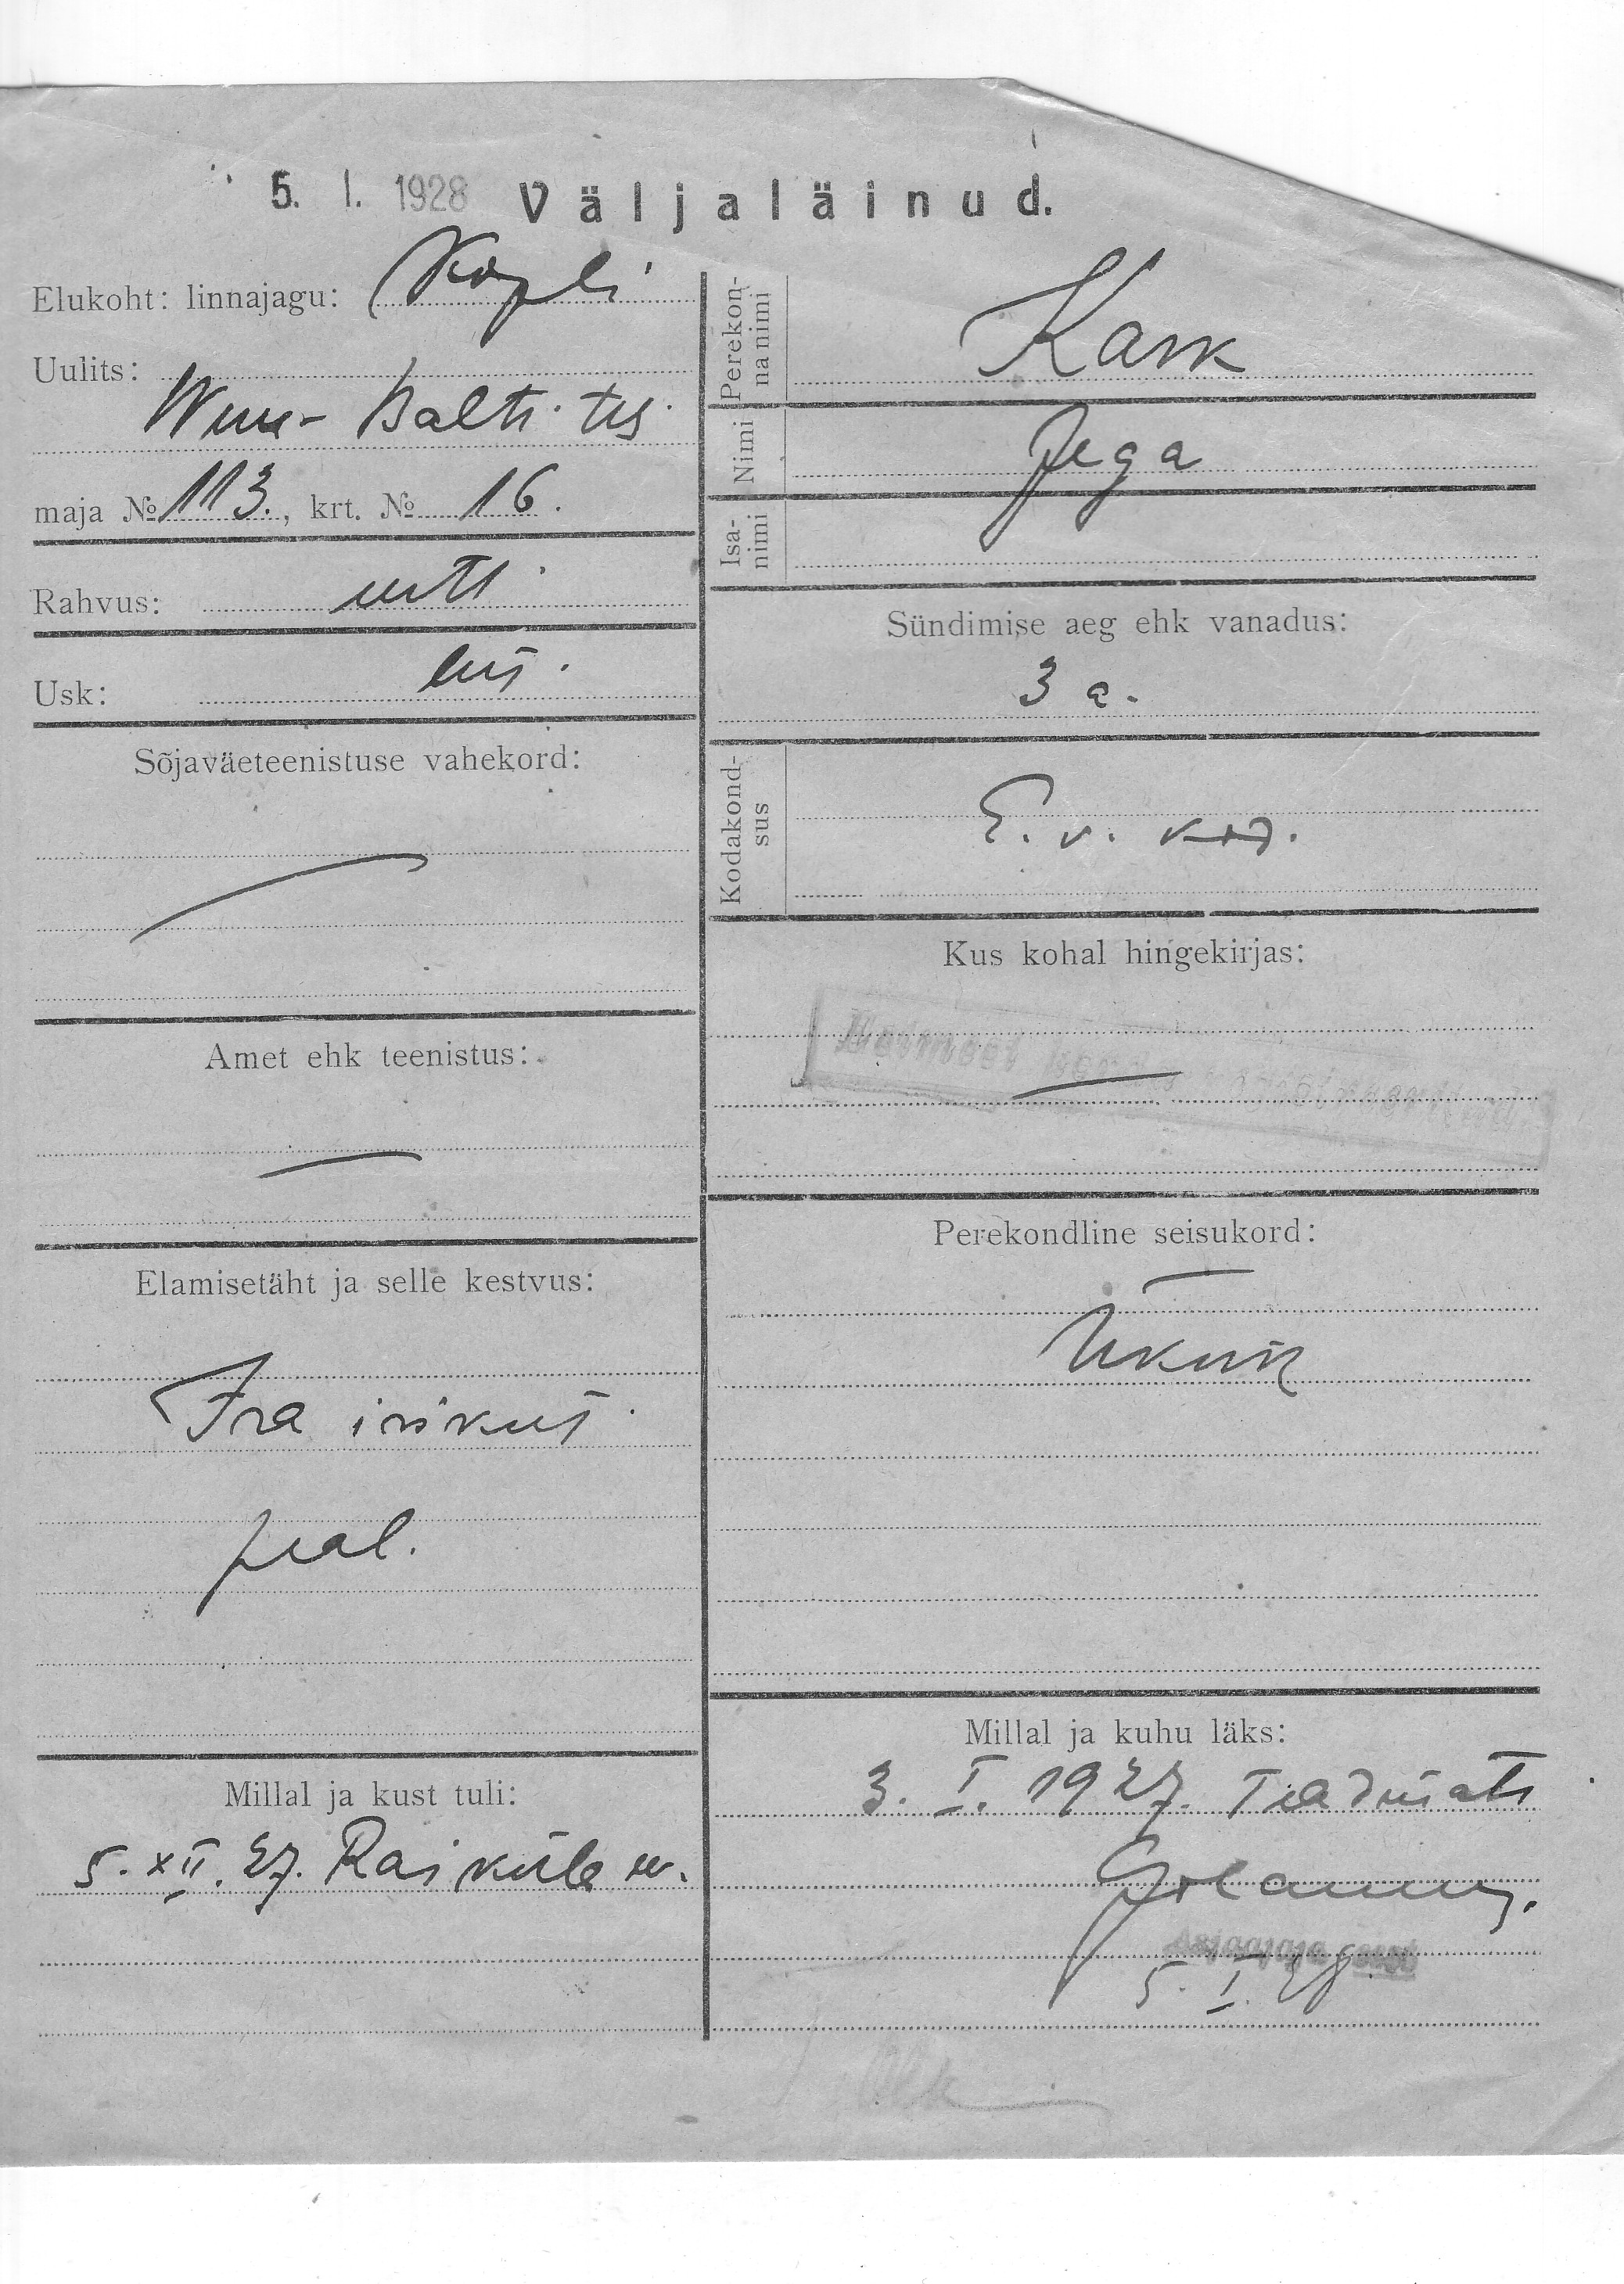 5. I. 1928 Väljaläinud.
Elukoht: linnajagu: Kopli
Uulits:
Wene-Balti teh.
maja № 113., krt. № 16.
Rahvus: eesti
Usk: lut.
Sõjaväeteenistuse vahekord:
Amet ehk teenistus:
Elamisetäht ja selle kestvus:
Isa isikut.
peal.
Millal ja kust tuli:
5. XII. 27. Raiküla
Perekonna nimi
Kask
Nimi
Isanimi
Sündimise aeg ehk vanadus:
3 a.
Kodakondsus
E. v. kod.
Kus kohal hingekirjas:
Perekondline seisukord:
Üksik
Millal ja kuhu läks:
3. I. 1927. Teadmata
Asjaajaja
5. I. 28